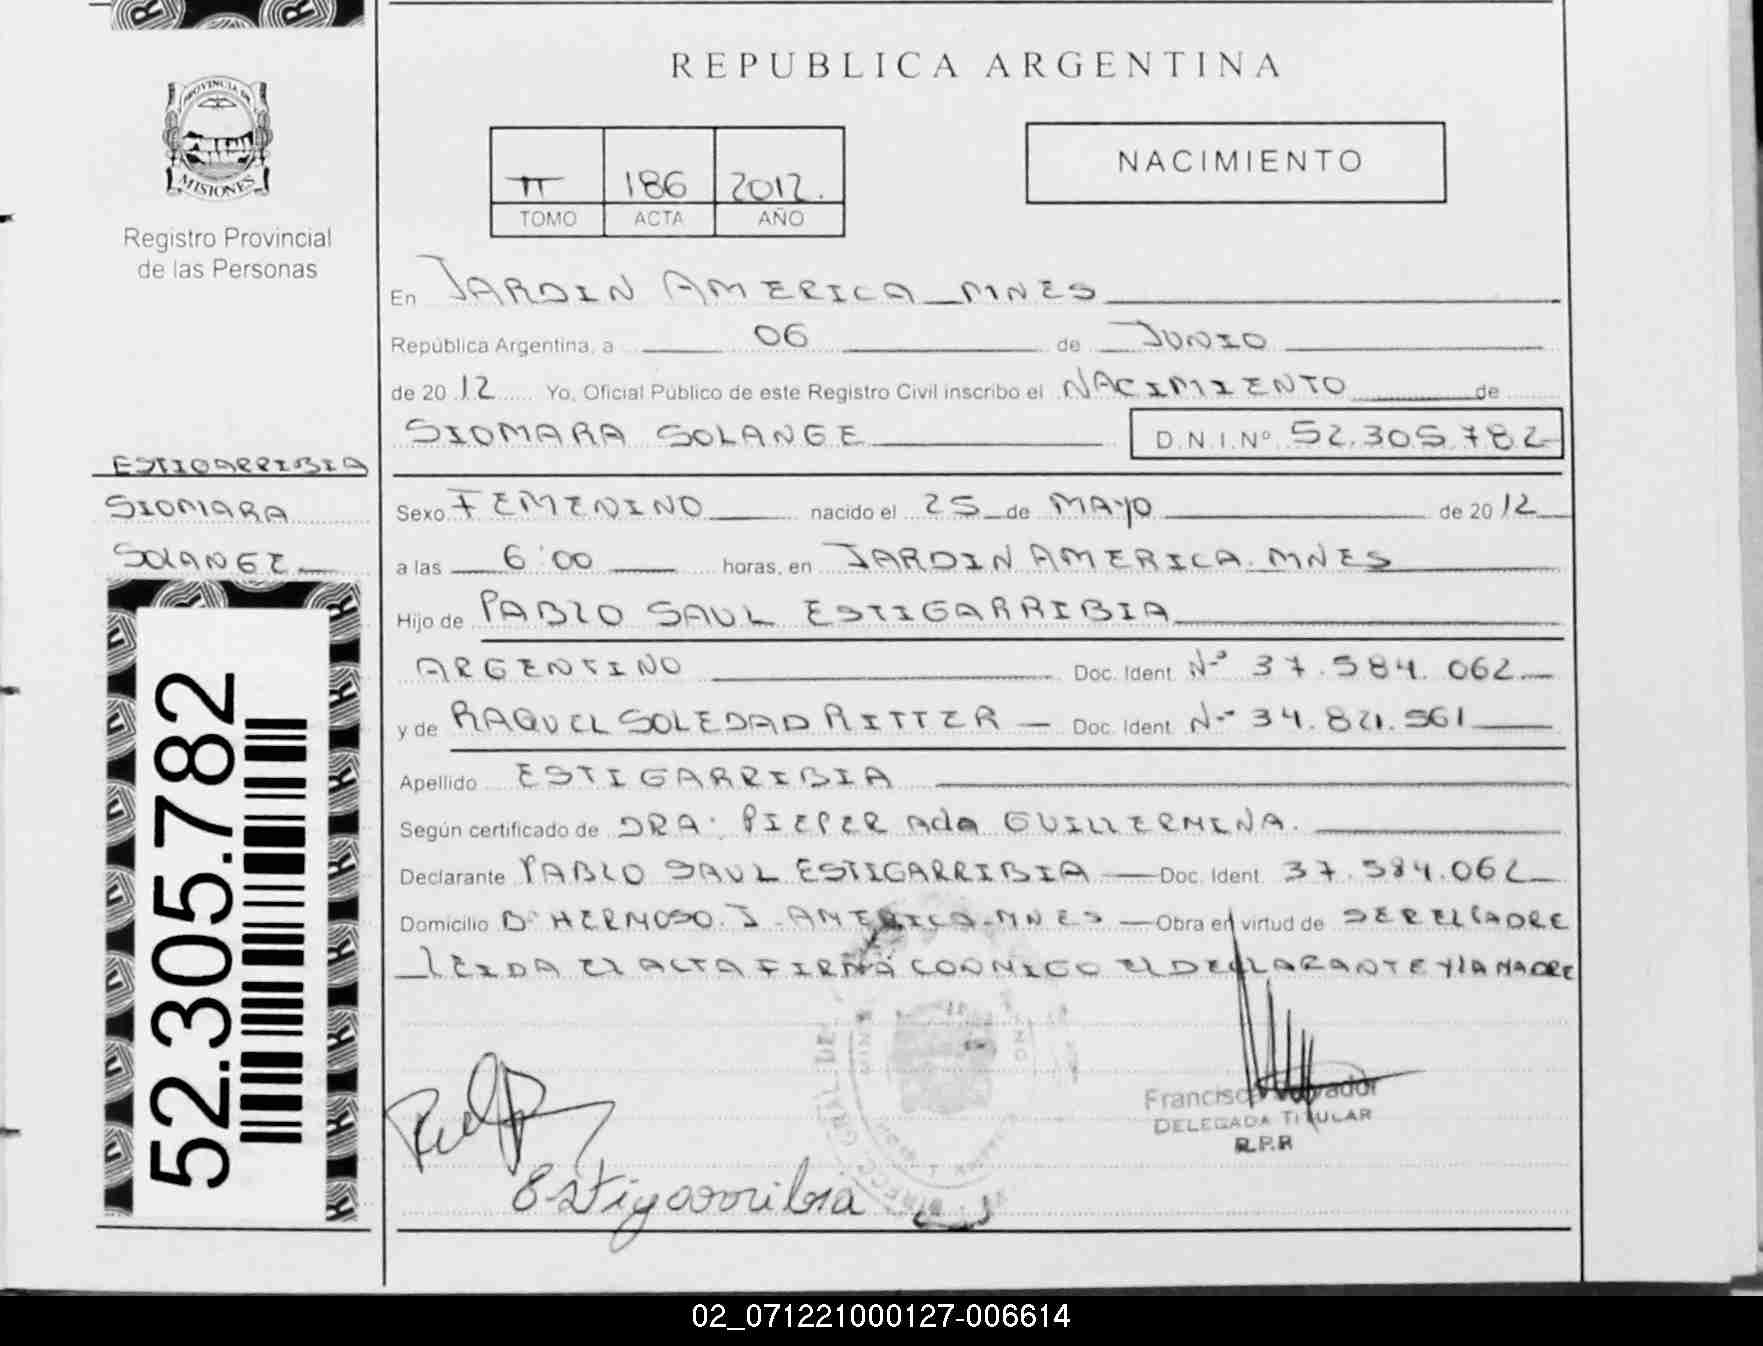 REPUBLICA ARGENTINA
PROVINCIA DE
MISIONES
Registro Provincial
de las Personas
II 186 2012.
TOMO ACTA AÑO
NACIMIENTO
En JARDIN AMERICA MNES
República Argentina, a 06 de JUNIO
de 20 12 Yo, Oficial Público de este Registro Civil inscribo el NACIMIENTO de
SIOMARA SOLANGE D.N.I.Nº 52.305.782
ESTIGARRIBIA
SIOMARA
SOLANGE
Sexo FEMENINO nacido el 25 de MAYO de 20 12
a las 6:00 horas, en JARDIN AMERICA. MNES
Hijo de PABLO SAUL ESTIGARRIBIA
ARGENTINO Doc. Ident. Nº 37.584.062
y de RAQUEL SOLEDAD RITTER Doc. Ident. Nº 34.821.561
Apellido ESTIGARRIBIA
Según certificado de DRA. PIEPER Ada GUILLERMINA.
Declarante PABLO SAUL ESTIGARRIBIA Doc. Ident. 37.584.062
Domicilio Bº HERMOSO. J. AMERICA-MNES Obra en virtud de SER EL PADRE
LEIDA EL ACTA FIRMA CONMIGO EL DECLARANTE Y LA MADRE
52.305.782
Estigarribia
DELEGADA TITULAR
R.P.P
02_071221000127-006614